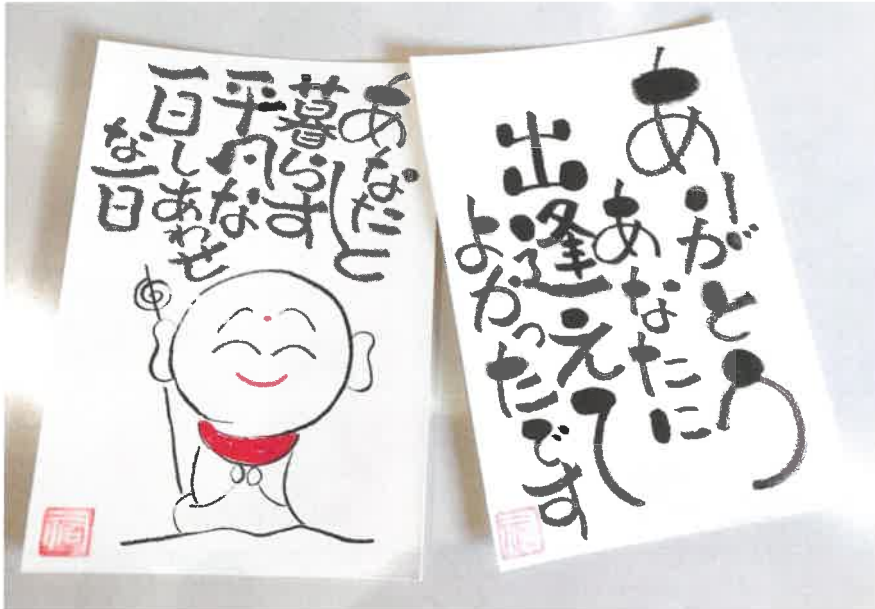 あなたと
暮らす
平凡な
一日しあわせ
な一日
ありがとう
あなたに
出逢えて
よかったです